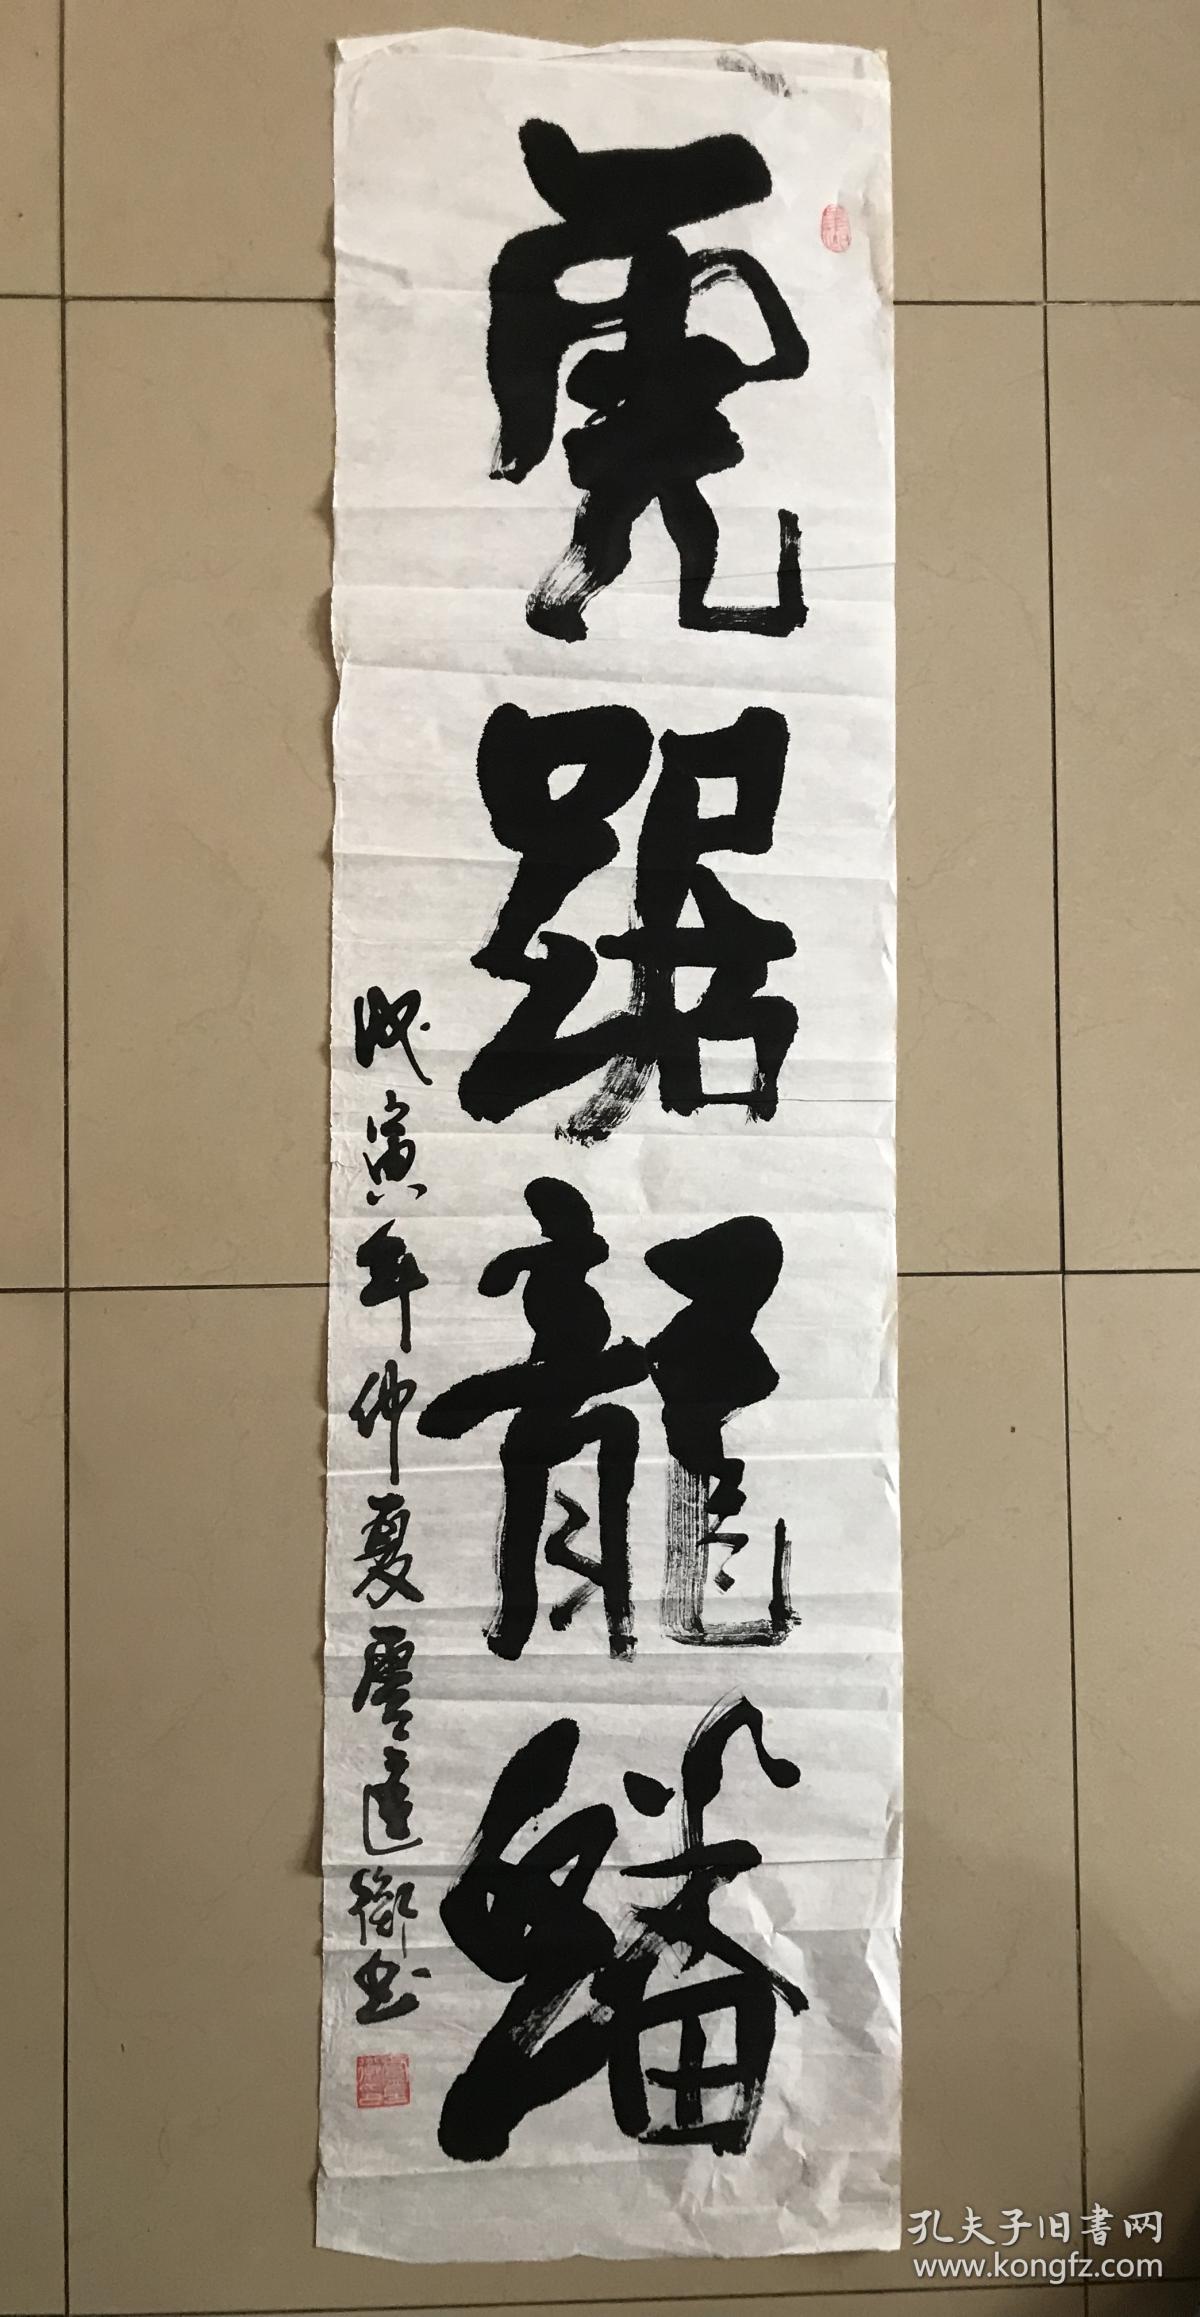 虎踞龍蟠
戊寅年仲夏
衡书
孔夫子旧書网
www.kongfz.com